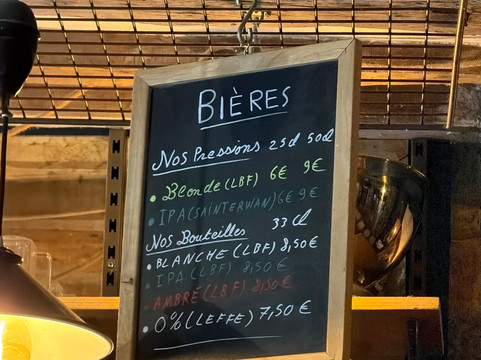 BIÈRES
Nos Pressions 25cl 50cl
• Blonde (LBF) 6€ 9€
• IPA (SAINTERWAN) 6€ 9€
Nos Bouteilles 33cl
• BLANCHE (LBF) 8,50€
• IPA (LBF) 8,50€
• AMBRÉ (LBF) 8,50€
• 0% (LEFFE) 7,50€